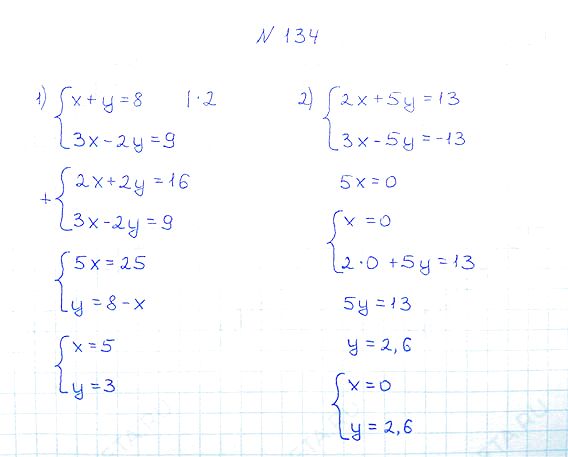 N 134
1) x+y=8 |·2
3x-2y=9
+ 2x+2y=16
3x-2y=9
5x=25
y=8-x
x=5
y=3
2) 2x+5y=13
3x-5y=-13
5x=0
x=0
2·0+5y=13
5y=13
y=2,6
x=0
y=2,6